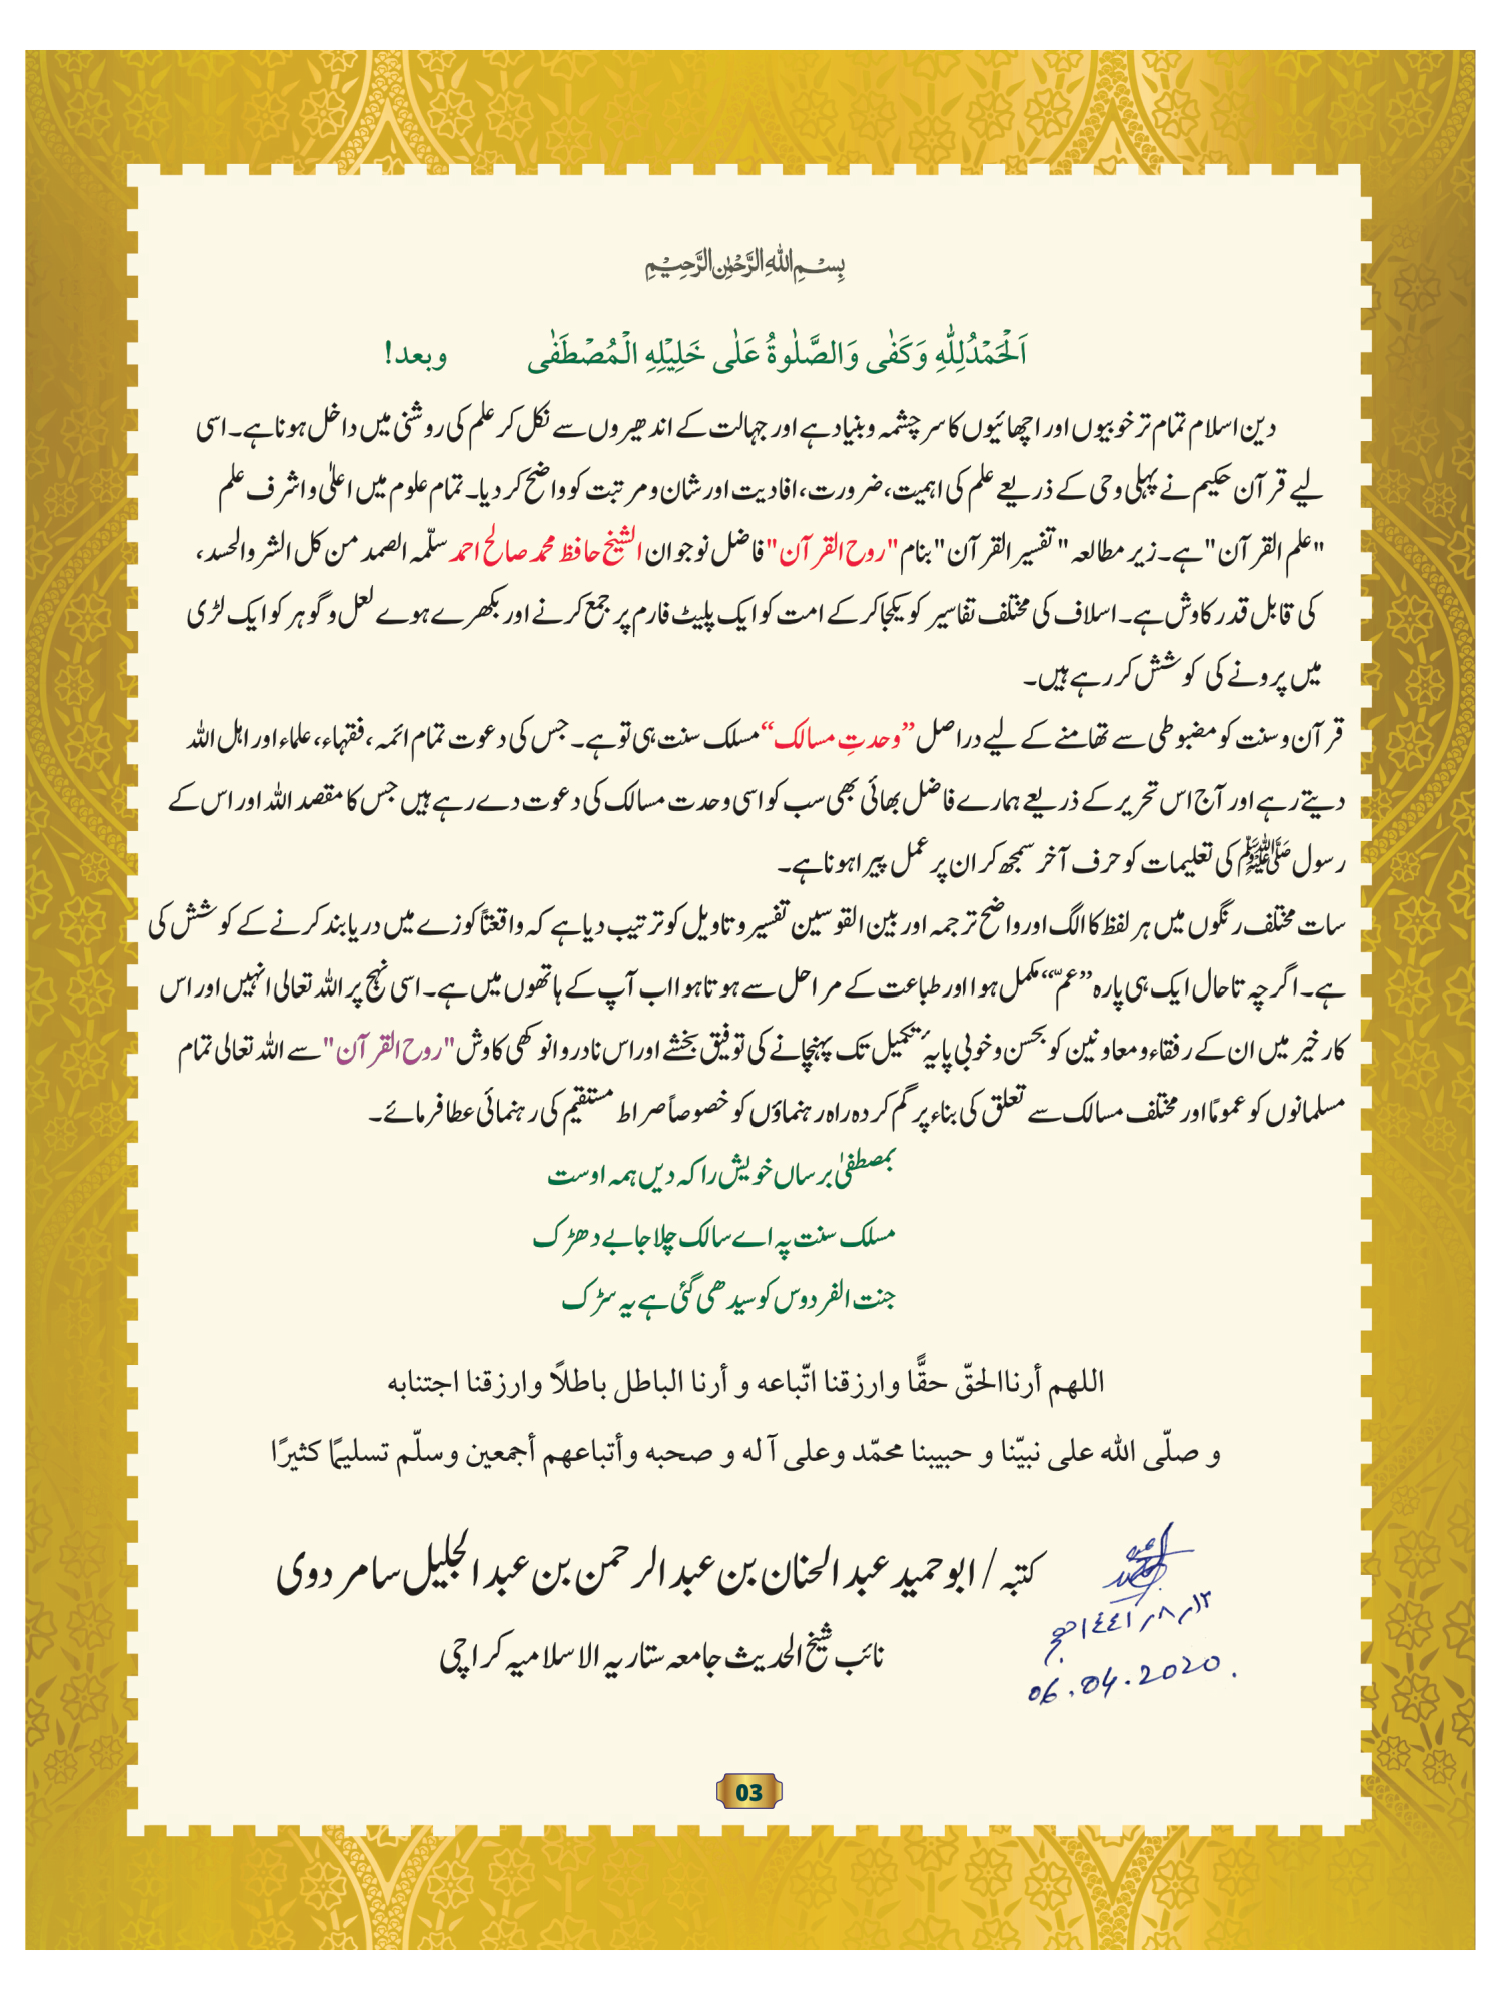 بِسْمِ اللهِ الرَّحْمٰنِ الرَّحِيْمِ
اَلْحَمْدُلِلّٰهِ وَكَفٰى وَالصَّلٰوةُ عَلٰى خَلِيْلِهِ الْمُصْطَفٰى وبعد!
دین اسلام تمام تر خوبیوں اور اچھائیوں کا سر چشمہ و بنیاد ہے اور جہالت کے اندھیروں سے نکل کر علم کی روشنی میں داخل ہونا ہے۔ اسی
لیے قرآن حکیم نے پہلی وحی کے ذریعے علم کی اہمیت، ضرورت، افادیت اور شان و مرتبت کو واضح کر دیا۔ تمام علوم میں اعلیٰ و اشرف علم
"علم القرآن" ہے۔ زیر مطالعہ "تفسیر القرآن" بنام "روح القرآن" فاضل نوجوان الشیخ حافظ محمد صالح احمد سلّمہ الصمد من کل الشر والحسد،
کی قابل قدر کاوش ہے۔ اسلاف کی مختلف تفاسیر کو یکجا کر کے امت کو ایک پلیٹ فارم پر جمع کرنے اور بکھرے ہوے لعل و گوہر کو ایک لڑی
میں پرونے کی کوشش کر رہے ہیں۔
قرآن و سنت کو مضبوطی سے تھامنے کے لیے دراصل ”وحدتِ مسالک“ مسلک سنت ہی تو ہے۔ جس کی دعوت تمام ائمہ، فقہاء، علماء اور اہل اللہ
دیتے رہے اور آج اس تحریر کے ذریعے ہمارے فاضل بھائی بھی سب کو اسی وحدت مسالک کی دعوت دے رہے ہیں جس کا مقصد اللہ اور اس کے
رسول ﷺ کی تعلیمات کو حرف آخر سمجھ کر ان پر عمل پیرا ہونا ہے۔
سات مختلف رنگوں میں ہر لفظ کا الگ اور واضح ترجمہ اور بین القوسین تفسیر و تاویل کو ترتیب دیا ہے کہ واقعتاً کوزے میں دریا بند کرنے کے کوشش کی
ہے۔ اگرچہ تا حال ایک ہی پارہ ”عمّ“ مکمل ہوا اور طباعت کے مراحل سے ہوتا ہوا اب آپ کے ہاتھوں میں ہے۔ اسی نہج پر اللہ تعالی انہیں اور اس
کار خیر میں ان کے رفقاء و معاونین کو بحسن و خوبی پایہٴ تکمیل تک پہنچانے کی توفیق بخشے اور اس نادر و انوکھی کاوش "روح القرآن" سے اللہ تعالی تمام
مسلمانوں کو عمومًا اور مختلف مسالک سے تعلق کی بناء پر گم کردہ راہ رہنماؤں کو خصوصاً صراط مستقیم کی رہنمائی عطا فرمائے۔
بمصطفیٰ برساں خویش را کہ دیں ہمہ اوست
مسلک سنت پہ اے سالک چلا جا بے دھڑک
جنت الفردوس کو سیدھی گئی ہے یہ سڑک
اللهم أرنا الحقّ حقًّا وارزقنا اتّباعه و أرنا الباطل باطلاً وارزقنا اجتنابه
و صلّى الله على نبيّنا و حبيبنا محمّد وعلى آله و صحبه وأتباعهم أجمعين وسلّم تسليمًا كثيرًا
کتبہ / ابو حمید عبد الحنان بن عبد الرحمن بن عبد الجلیل سامرودی
نائب شیخ الحدیث جامعہ ستاریہ الاسلامیہ کراچی
١٢ر٨ر١٤٤١ھج
06.04.2020.
03